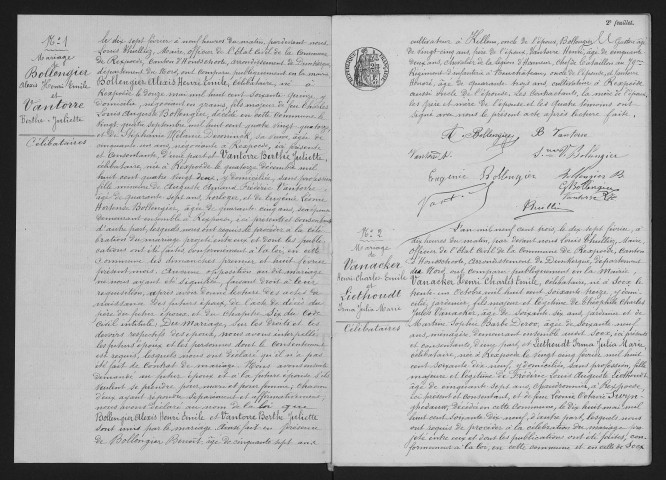 N° 1
Mariage
de
Bollengier
Alexis Henri Emile
et
Vantorre
Berthe Juliette
Célibataires
le dix sept février à neuf heures du matin, pardevant nous
Louis Thuilliez, Maire, officier de l'état civil de la Commune
de Rexpoëde, Canton d'Hondschoote, arrondissement de Dunkerque,
département du Nord, ont comparu publiquement en la mairie
Bollengier Alexis Henri Emile, célibataire, né à
Rexpoëde le douze mai mil huit cent soixante quinze, y
domicilié, négociant en grains, fils majeur de feu Charles
Louis Auguste Bollengier, décédé en cette commune le
vingt quatre septembre mil huit cent quatre vingt quatorze
et de Stéphanie Mélanie Deconinck, sa veuve, âgée de
cinquante six ans, négociante à Rexpoëde, ici présente
et consentante, d'une part et Vantorre Berthe Juliette,
célibataire, née à Rexpoëde le quatorze décembre mil
huit cent quatre vingt deux, y domiciliée, sans profession
fille mineure de Auguste Edmond Frédéric Vantorre,
âgé de quarante sept ans, horloger, et de Eugénie Léonie
Hortense Bollengier, âgée de quarante cinq ans, sans pro-
demeurant ensemble à Rexpoëde, ici présents et consentants
d'autre part, lesquels nous ont requis de procéder à la célé-
bration du mariage projeté entre eux et dont les publi-
cations ont été faites conformément à la loi, en cette
commune les dimanches premier et huit février
présent mois. Aucune opposition au dit mariage
ne nous ayant été signifiée, faisant droit à leur
réquisition, après avoir donné lecture des actes de
naissance des futurs époux, de l'acte de décès du
père du futur époux et du Chapitre Six du Code
Civil intitulé: Du Mariage, sur les droits et les
devoirs respectifs des époux, nous avons interpellé
les futurs époux et les personnes dont le consentement
est requis, lesquels nous ont déclaré qu'il n'a pas
été fait de contrat de mariage. Nous avons ensuite
demandé au futur époux et à la future épouse s'ils
veulent se prendre pour mari et pour femme; chacun
d'eux ayant répondu séparément et affirmativement,
nous avons déclaré au nom de la loi que
Bollengier Alexis Henri Emile et Vantorre Berthe Juliette
sont unis par le mariage. Ainsi fait en présence
de Bollengier Benoît, âgé de cinquante sept ans
2e feuillet
cultivateur à Killem, oncle de l'époux, Bollengier
de vingt cinq ans, frère de l'époux, Vantorre Henri, âgé de cinquante
deux ans, chevalier de la légion d'honneur, chef de Bataillon au
Régiment d'infanterie à oncle de l'épouse, et
Henri, âgé de quarante six ans cultivateur à Rexpoëde
aussi oncle de l'épouse. Les contractants, la mère de l'époux,
les père et mère de l'épouse et les quatre témoins ont
signé avec nous le présent acte après lecture faite.
A. Bollengier B Vantorre
Vantorre A. Bollengier
Eugénie Bollengier Bollengier B
G Bollengier
Vantorre
Thuilliez
N° 2
Mariage
de
Vanacker
Henri Charles Emile
et
Liethoudt
Irma Julia Marie
Célibataires
L'an mil neuf cent trois, le dix sept février, à
dix heures du matin, par devant nous Louis Thuilliez, Maire,
officier de l'état civil de la Commune de Rexpoëde, Canton
d'Hondschoote, arrondissement de Dunkerque, département
du Nord, ont comparu publiquement en la Mairie
Vanacker Henri Charles Emile, célibataire, né à Socx, le
trente un octobre mil huit cent soixante treize, y domi-
cilié, jardinier, fils majeur et légitime de Théophile Charles
Jules Vanacker, âgé de soixante six ans, jardinier et de
Martine Sophie Barbe Deroo, âgée de soixante neuf
ans, ménagère, demeurant ensemble audit Socx, ici présents
et consentants, d'une part, et Liethoudt Irma Julia Marie,
célibataire, née à Rexpoëde le vingt cinq février mil huit
cent soixante dix neuf, y domiciliée, sans profession, fille
majeure et légitime de Louis Auguste Liethoudt,
âgé de cinquante sept ans, à Rexpoëde,
ici présent et consentant, et de feu Léonie Octavie
décédée en cette commune, le dix huit mai mil
huit cent soixante dix neuf, d'autre part, lesquels nous
ont requis de procéder à la célébration du mariage pro-
jeté entre eux et dont les publications ont été faites, con-
formément à la loi, en cette commune et en celle de Socx